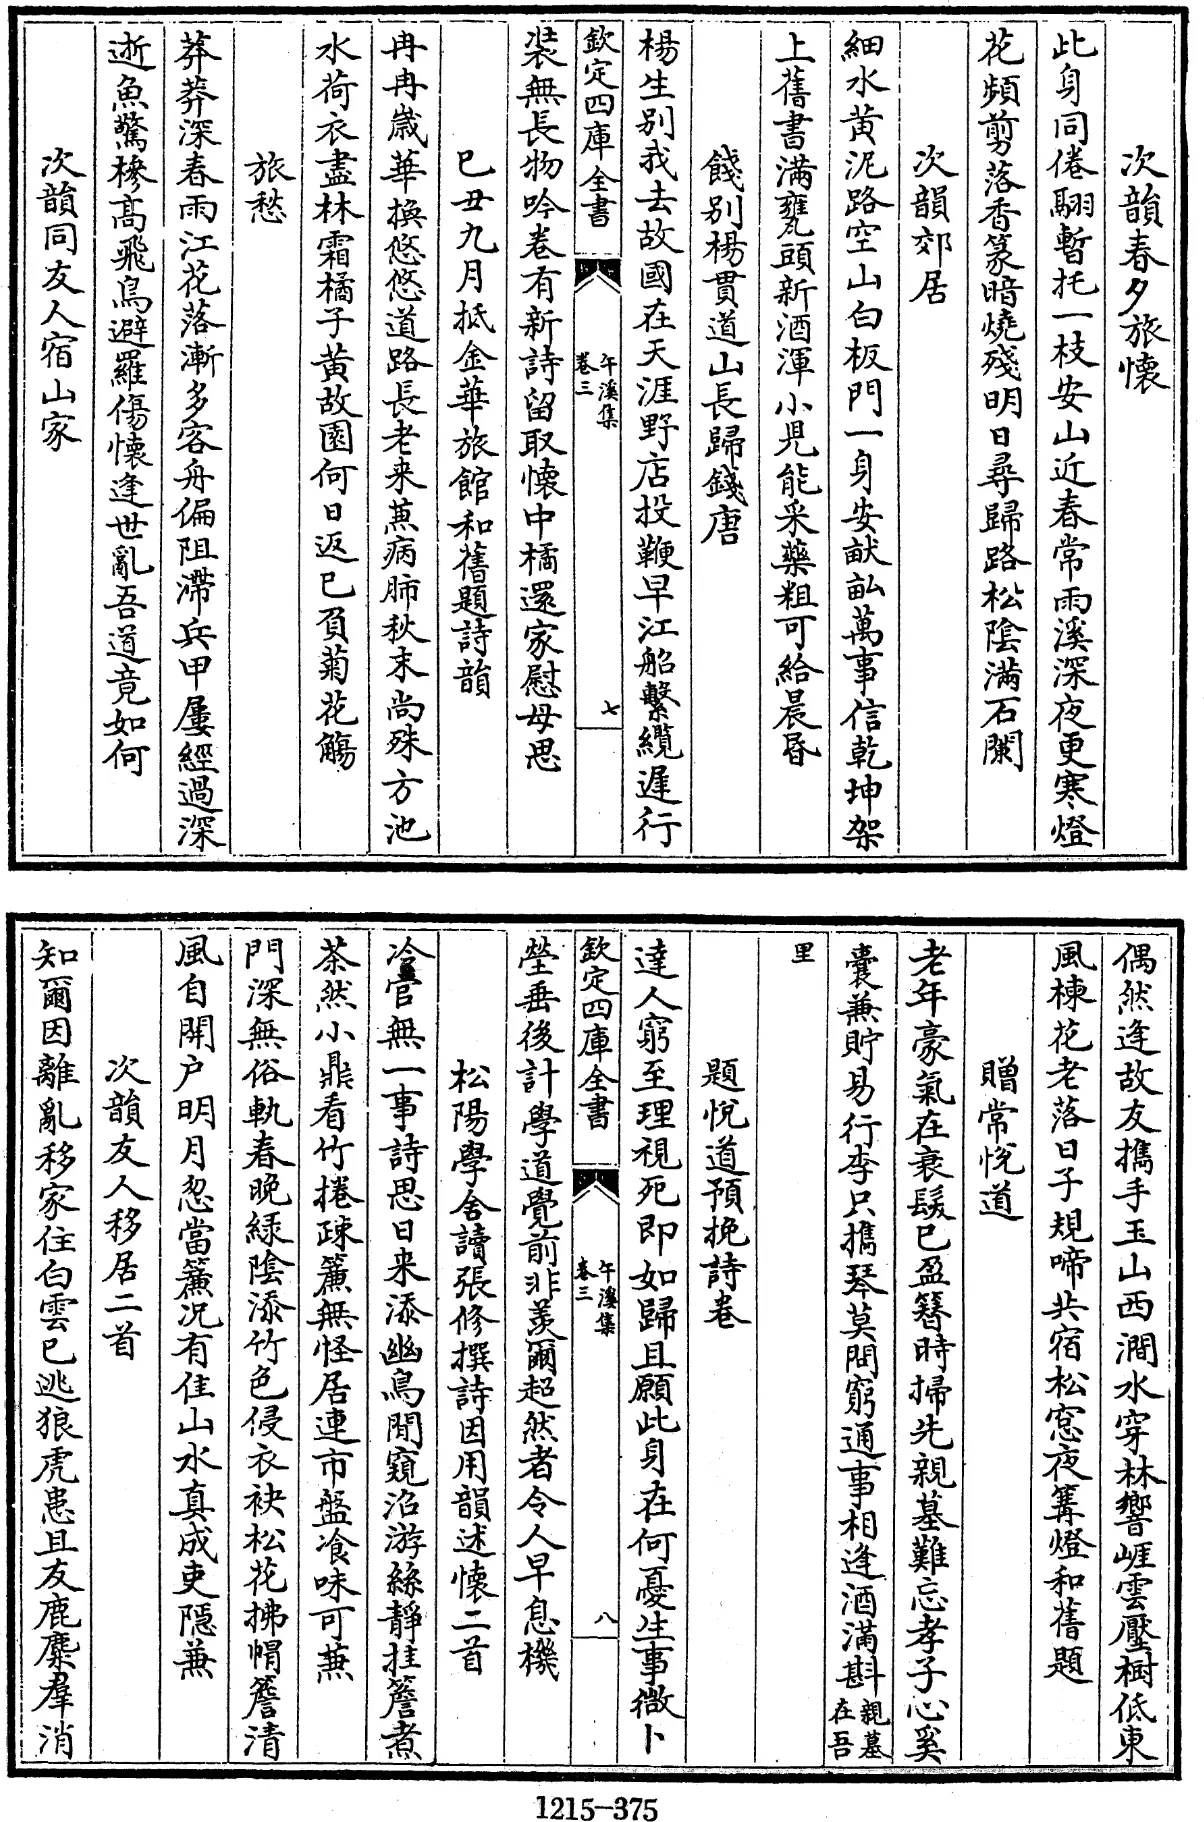 次韻春夕旅懷
此身同倦翮暫托一枝安山近春常雨溪深夜更寒燈
花頻剪落香篆暗燒殘明日尋歸路松陰滿石闌
次韻郊居
細水黄泥路空山白板門一身安畎畝萬事信乾坤架
上舊書滿甕頭新酒渾小児能采藥粗可給晨昏
餞別楊貫道山長歸錢唐
楊生别我去故國在天涯野店投鞭早江船繫纜遲行
欽定四庫全書
午溪集
卷三
七
装無長物吟卷有新詩留取懷中橘還家慰母思
已丑九月抵金華旅館和舊題詩韻
冉冉歳華換悠悠道路長老来蒸病肺秋末尚殊方池
水荷衣盡林霜橘子黄故園何日返已負菊花觴
旅愁
莽莽深春雨江花落漸多客舟偏阻滯兵甲屢經過深
逝魚驚槮髙飛鳥避羅傷懐逢世亂吾道竟如何
次韻同友人宿山家
偶然逢故友攜手玉山西澗水穿林響崕雲壓樹低東
風楝花老落日子規啼共宿松窓夜篝燈和舊題
贈常悅道
老年豪氣在衰髮已盈簪時掃先親墓難忘孝子心奚
囊兼貯易行李只攜琴莫問窮通事相逢酒滿斟親墓
在吾
里
題悅道預挽詩卷
達人窮至理視死即如歸且願此身在何憂生事微卜
欽定四庫全書
午溪集
卷三
八
塋垂後計學道覺前非羨爾超然者令人早息機
松陽學舍讀張修撰詩因用韻述懷二首
冷官無一事詩思日来添幽鳥閒窺沼游絲靜挂簷煮
茶然小鼎看竹捲疎簾無怪居連市盤飡味可蒹
門深無俗軌春晚緑陰添竹色侵衣袂松花拂帽簷清
風自開户明月忽當簾况有佳山水真成吏隱兼
次韻友人移居二首
知爾因離亂移家住白雲已逃狼虎患且友鹿麋羣消
1215-375